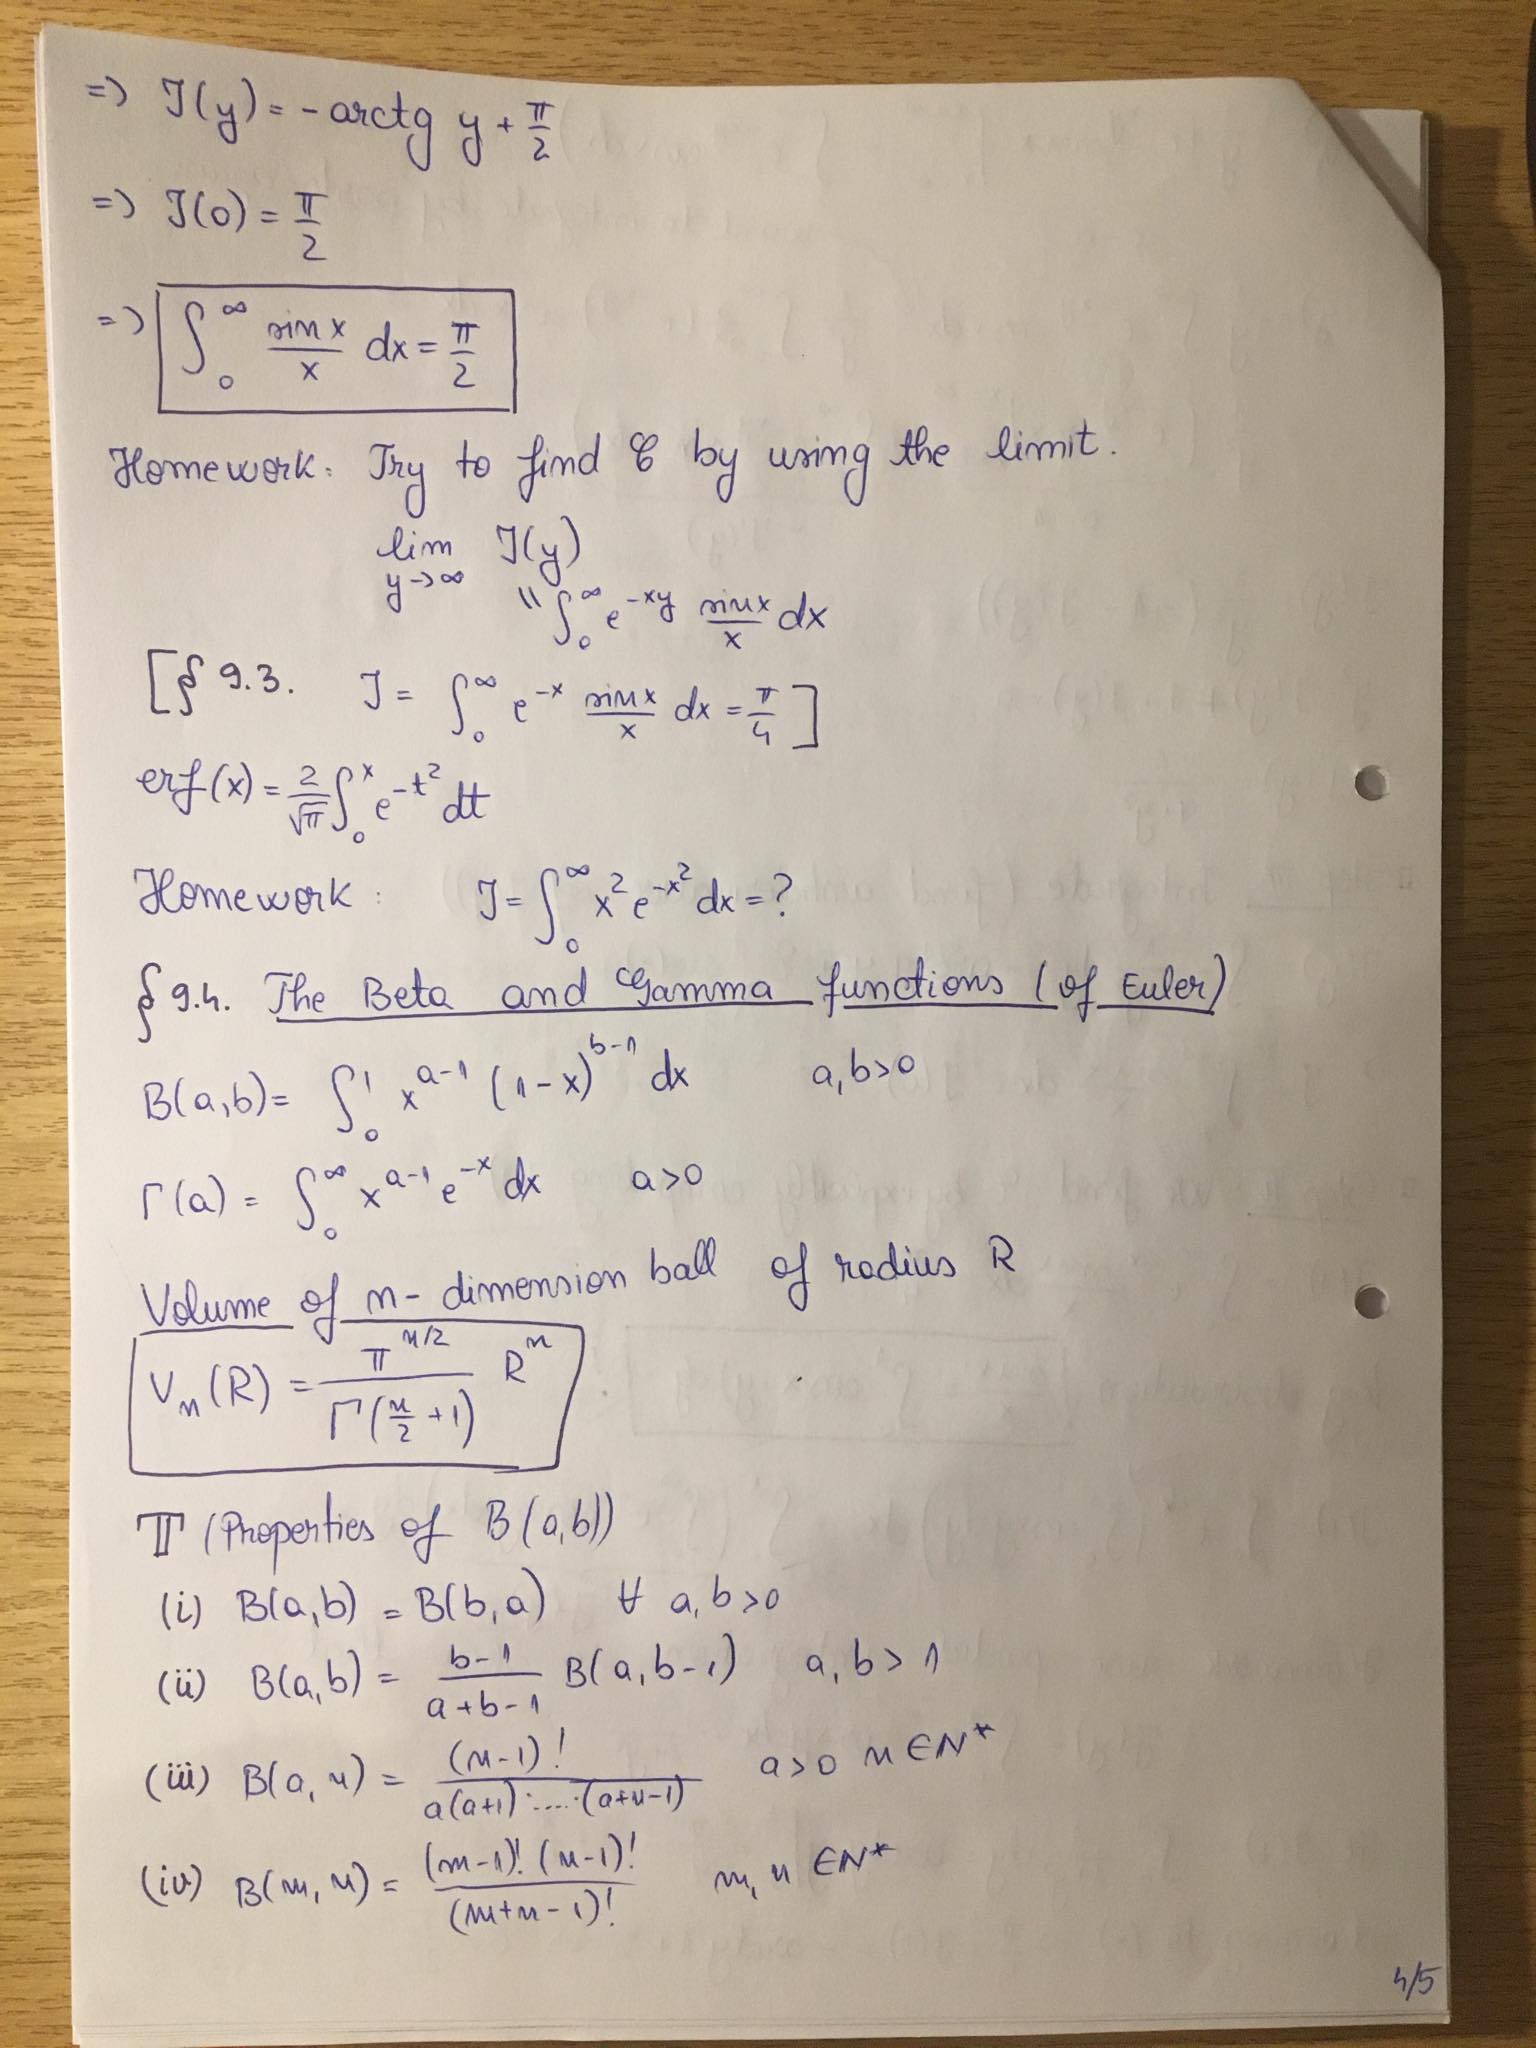 => J(y) = - arctg y + π/2
=> J(0) = π/2
=> ∫₀^∞ sin x / x dx = π/2
Homework: Try to find C by using the limit.
lim J(y)
y→∞ " ∫₀^∞ e^(-xy) sin x / x dx
[§ 9.3. J = ∫₀^∞ e^(-x) sin x / x dx = π/4 ]
erf(x) = 2/√π ∫₀^x e^(-t²) dt
Homework: J = ∫₀^∞ x² e^(-x²) dx = ?
§ 9.4. The Beta and Gamma functions (of Euler)
B(a,b) = ∫₀^1 x^(a-1) (1-x)^(b-1) dx a,b>0
Γ(a) = ∫₀^∞ x^(a-1) e^(-x) dx a>0
Volume of n-dimension ball of radius R
Vn(R) = π^(n/2) / Γ(n/2 + 1) R^n
T (Properties of B(a,b))
(i) B(a,b) = B(b,a) ∀ a,b>0
(ii) B(a,b) = (b-1)/(a+b-1) B(a,b-1) a,b > 1
(iii) B(a,n) = (n-1)! / a(a+1)·....·(a+n-1) a>0 n∈N*
(iv) B(m,n) = (m-1)! (n-1)! / (m+n-1)! m,n ∈N*
4/5